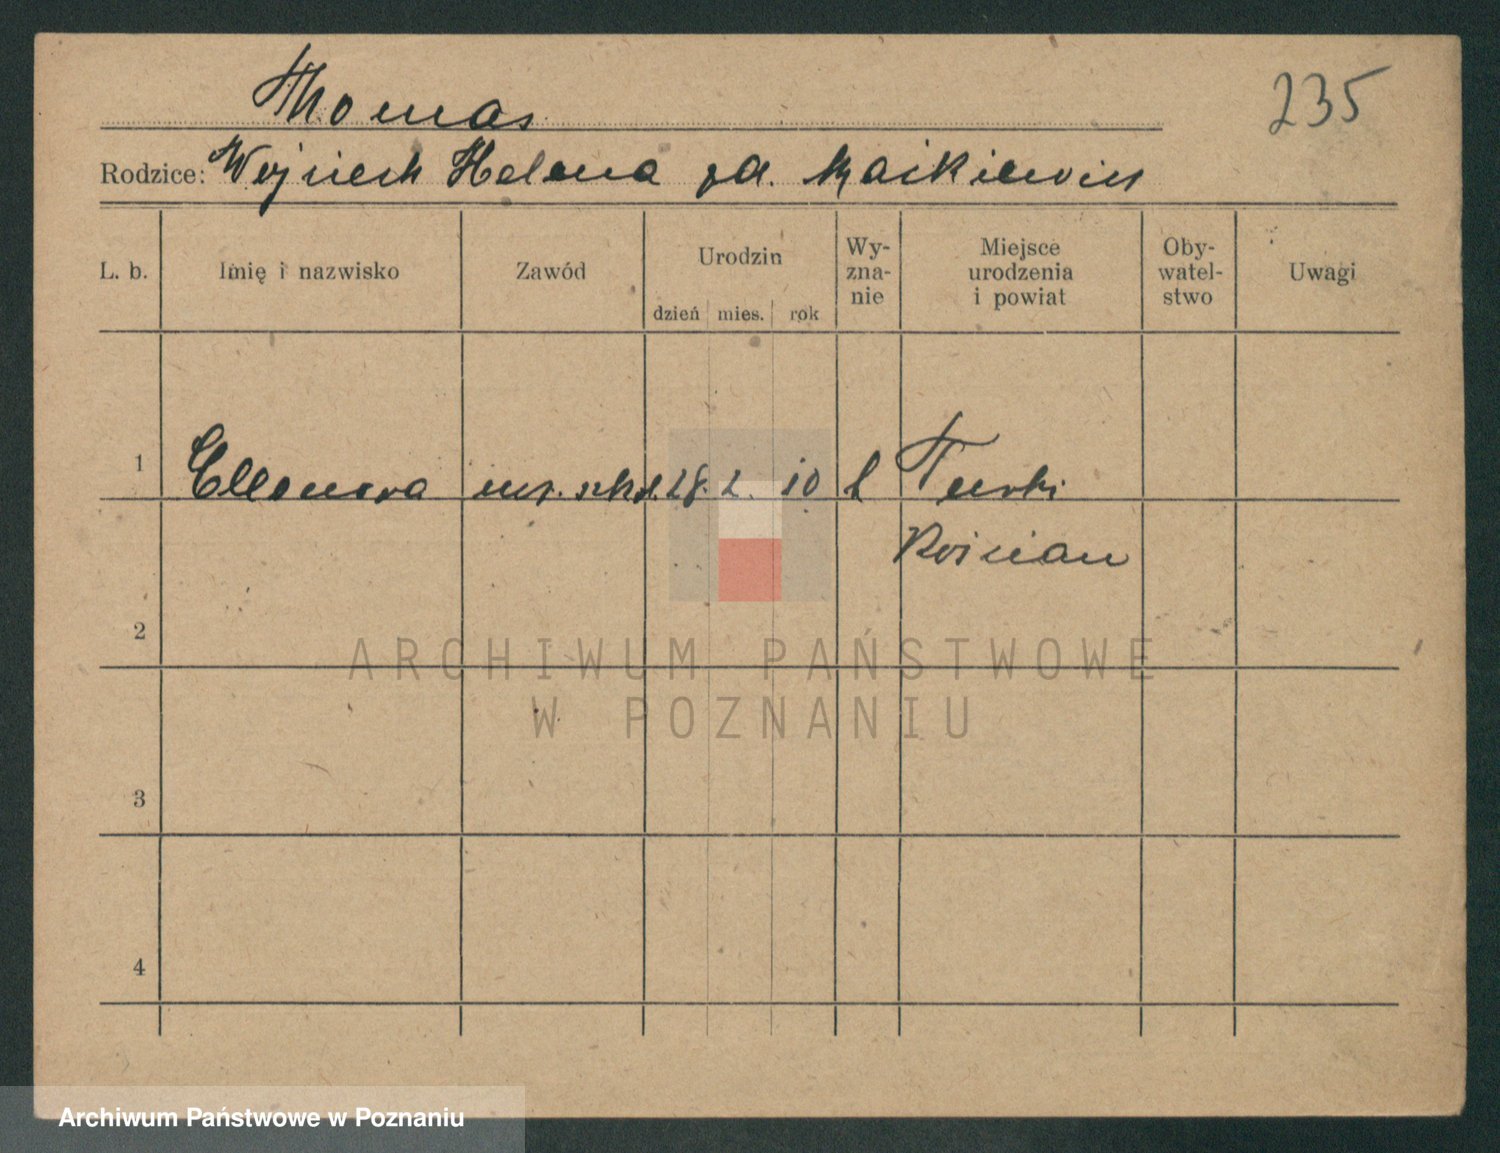 Thomas
235
Rodzice: Wojciech Helena zd. Maikiewicz
L. b. Imię i nazwisko Zawód Urodzin dzień mies. rok Wy-zna-nie Miejsce urodzenia i powiat Oby-watel-stwo Uwagi
1 28. 2. 10 Turki
Kościan
2
ARCHIWUM PAŃSTWOWE
W POZNANIU
3
4
Archiwum Państwowe w Poznaniu